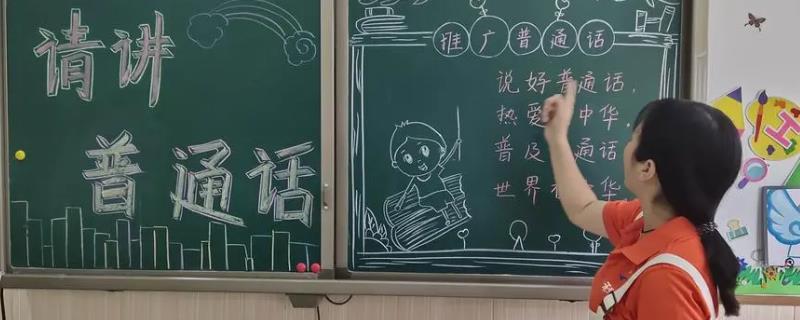 请讲
普通话
推广普通话
说好普通话,
热爱 中华,
普及 通话
世界 华